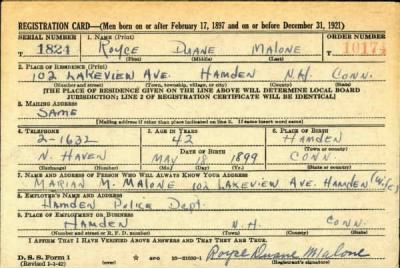 REGISTRATION CARD—(Men born on or after February 17, 1897 and on or before December 31, 1921)
SERIAL NUMBER 1. NAME (Print) ORDER NUMBER
1824 ROYCE DUANE MALONE 10174
(First) (Middle) (Last)
2. PLACE OF RESIDENCE (Print)
102 LAKEVIEW AVE. HAMDEN N.H. CONN.
(Number and street) (Town, township, village, or city) (County) (State)
[THE PLACE OF RESIDENCE GIVEN ON THE LINE ABOVE WILL DETERMINE LOCAL BOARD
JURISDICTION; LINE 2 OF REGISTRATION CERTIFICATE WILL BE IDENTICAL]
3. MAILING ADDRESS
SAME
[Mailing address if other than place indicated on line 2. If same insert word same]
4. TELEPHONE 5. AGE IN YEARS 6. PLACE OF BIRTH
2-1632 42 HAMDEN
DATE OF BIRTH (Town or county)
N. HAVEN MAY 18 1899 CONN.
(Exchange) (Number) (Mo.) (Day) (Yr.) (State or country)
7. NAME AND ADDRESS OF PERSON WHO WILL ALWAYS KNOW YOUR ADDRESS
MARIAN M. MALONE 102 LAKEVIEW AVE. HAMDEN (Wife)
8. EMPLOYER'S NAME AND ADDRESS
HAMDEN POLICE DEPT.
9. PLACE OF EMPLOYMENT OR BUSINESS
HAMDEN N.H. CONN.
(Number and street or R. F. D. number) (Town) (County) (State)
I AFFIRM THAT I HAVE VERIFIED ABOVE ANSWERS AND THAT THEY ARE TRUE.
D. S. S. Form 1
(Revised 1-1-42) GPO 16-21630-1 Royce Duane Malone
(Registrant's signature)